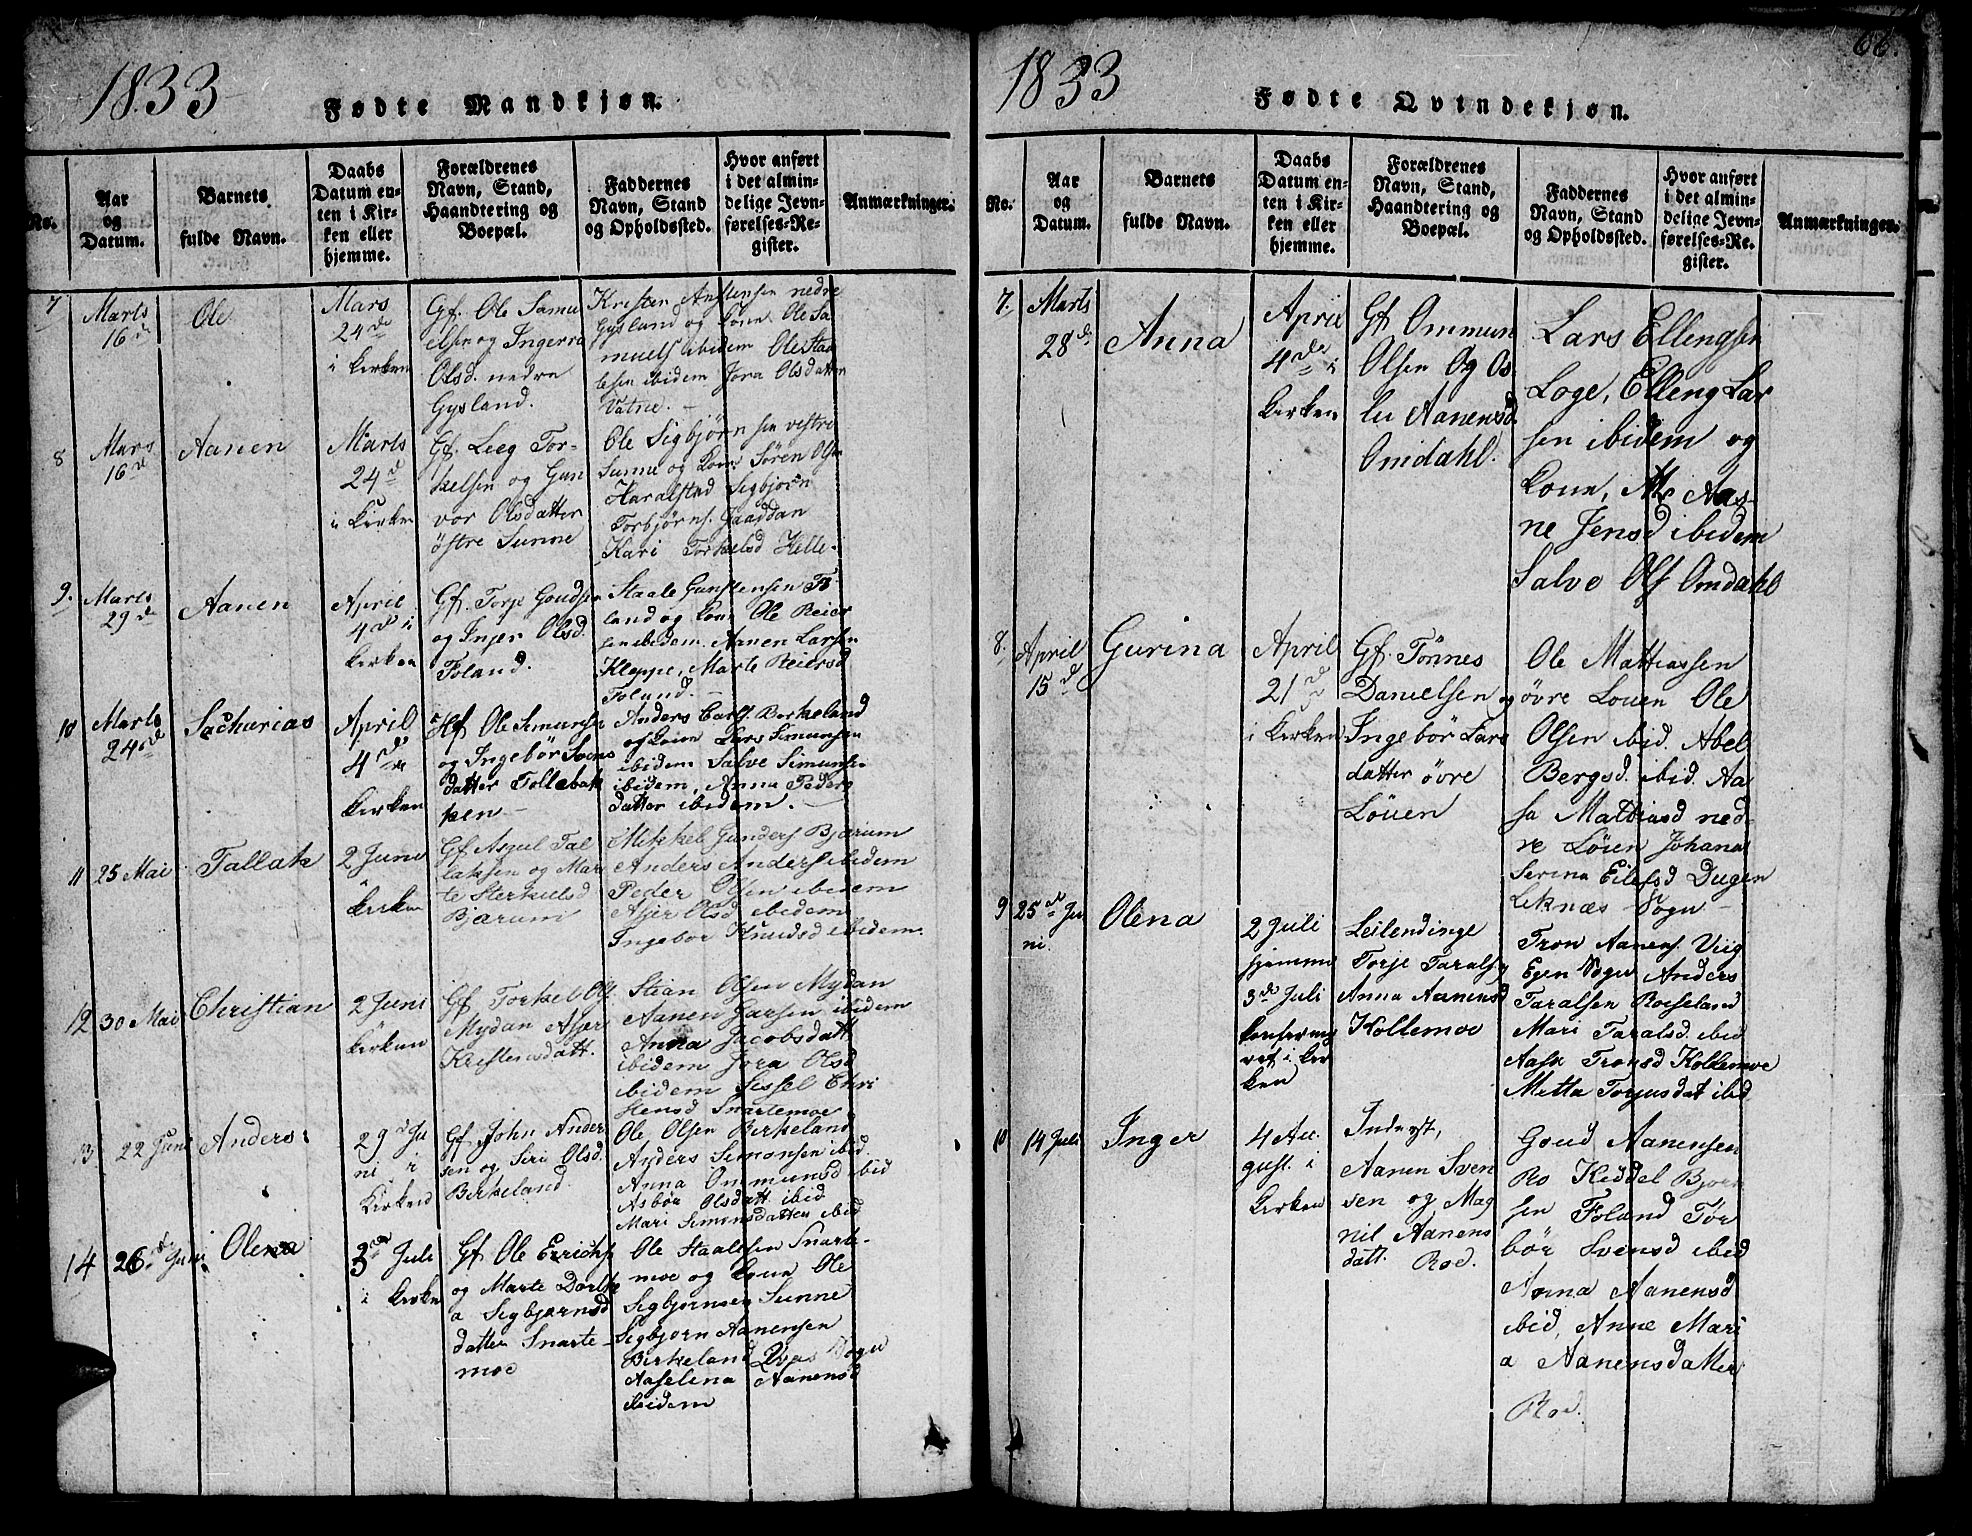 1833
Fødte Mandkjøn.
No.
Aar
og
Datum.
Barnets
fulde Navn.
Daabs
Datum en-
ten i Kir-
ken eller
hjemme.
Forældrenes
Navn, Stand,
Haandtering og
Boepæl.
Faddernes
Navn, Stand
og Opholdssted.
Hvor anført
i det almin-
delige Jevn-
førelses-Re-
gister.
Anmærkninger.
7
Marts
16 de
Ole
Mars
24 de
i kirken
Gf. Ole Samu
elsen og Ingerra
Olsd. nedre
Gysland.
Kristen Anstensen nedre
Gysland og kone Ole Sa
muels ibidem Ole Staa
lesen ibidem Jora Olsdatter
Vatne.
8
Mars
16 d
Aanen
Marts
24 d
i kirken
Gf. Leeg Tor-
kelsen og Gun
vor Olsdatter
østre Sunne
Ole Sigbjørnsen vestre
Sunne og kone Søren Olsen
Haralstad Sigbjørn
Torbjørns. Gaaddan
Kari Torkelsd Helle.
9.
Marts
29 de
Aanen
April
4 d i
kirken
Gf. Torje Goudsen
og Injer Olsd.
Foland.
Staale Gunstensen Fo
land og kone Ole Reier
sen ibidem Aanen Larsen
Kleppe, Marte Reiersd
Foland.
10
Marts
24 de
Sacharias
April
4 de i
kirken
Hf. Ole Simunsen
og Ingebør Svens
datter Tollebak
ken
Anders Carls. Berkeland
og kone Lars Simunsen
ibidem Salve Simunse
ibidem, Anna Peders
datter ibidem.
11
25 Mai
Tallak
2 Juni
i
kirken
Gf Asgul Tal
laksen og Mar
te Sterkelsd
Bjærum
Mikkel Gunders Bjærum
Anders Anders ibidem
Peder Olsen ibidem
Asjer Olsd ibidem
Ingebor Knudsd ibidem.
12
30 Mai
Christian
2 Juni
kirken
Gf Torkel Ols
Mydan Asjer
Kristensdatt.
Stean Olsen Mydan
Aanen Larsen ibidem
Anna Jacobsdatt
ibidem Jora Olsd
ibidem Sissel Chri
stensd Snartemoe
13
22 Juni
Anders
29 d Ju
ni i
Kirken
Gf John Ander
sen og Siri Olsd.
Birkeland
Ole Olsen Birkeland
Anders Simonsen ibid.
Anna Ommunsd ibid
Asbør Olsdatt ibid
Mari Simonsdatter ibid
14
26 de Juni
Olena
3 d Juli
i kirken
Gf Ole Errichs
og Marte Dorthe
a Segbjørnsd
datter Snarte-
moe
Ole Staalesen Snarte-
moe og kone Ole
Segbjørnsen Sunne
Segbjørn Aanensen
Birkeland Qvas Sogn
Aaselena Aanensd
ibidem
66.
1833
Fødte Qvindekjøn.
No.
Aar
og
Datum.
Barnets
fulde Navn.
Daabs
Datum en-
ten i Kir-
ken eller
hjemme.
Forældrenes
Navn, Stand,
Haandtering og
Boepæl.
Faddernes
Navn, Stand
og Opholdssted.
Hvor anført
i det almin-
delige Jevn-
førelses-Re-
gister.
Anmærkninger.
7.
Marts
28 d.
Anna
April
4 de i
kirken
Gf Ommun
Olsen Og Os
lu Aanensd.
Omdahl.
Lars Ellengsen
Loge, Elleng Lar
sen ibidem og
kone, Aas-
ne Jensd ibidem
Salve Ols Omdahl
8.
April
15 d
Gurina
April
21 d
i kirken
Gf. Tønnes
Danielsen og
Ingebør Lars
datter øvre
Løuen
Ole Mattiassen
øvre Louen Ole
Olsen ibid. Abel
Bergsd. ibid. Aa
sa Mathiasd ned-
re Løuen Johana
Serina Eilefsd Dugen
Leknæs Sogn
9
25 d Ju
ni
Olena
2 Juli
hjemme
3 d Juli
konfirme
ret i kir
ken
Leilendinge
Torje Taralsg
Anna Aanensd
Kollemoe
Tron Aanens. Viig
Egen Sogn Anders
Taralsen Roiseland
Mari Taralsd. ibid
Aasa Tronsd Kollemoe
Metta Torjusdat ibid
10
14 Juli
Inger
4 Au-
gust. i
kirken
Inderst,
Aanen Sven
sen og Mag
nil Aanens
datt. Rod.
Goud Aanensen
Ro Keddel Bjørn
sen Foland Tor
bør Svensd ibid
Anna Aanensd
ibid, Anne Mari
a Aanensdatter
Rod.